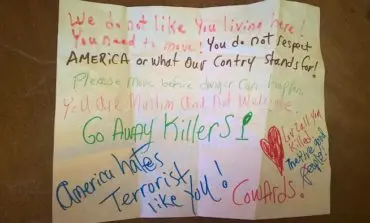 We do not like you living here!
You need to move! You do not respect
AMERICA or what our Contry stands for!
Please move before danger can happen
You are Muslim and not Welcome
Go Away Killers!
America hates
Terrorist
like You!
Cowards!
you
Killed
people!